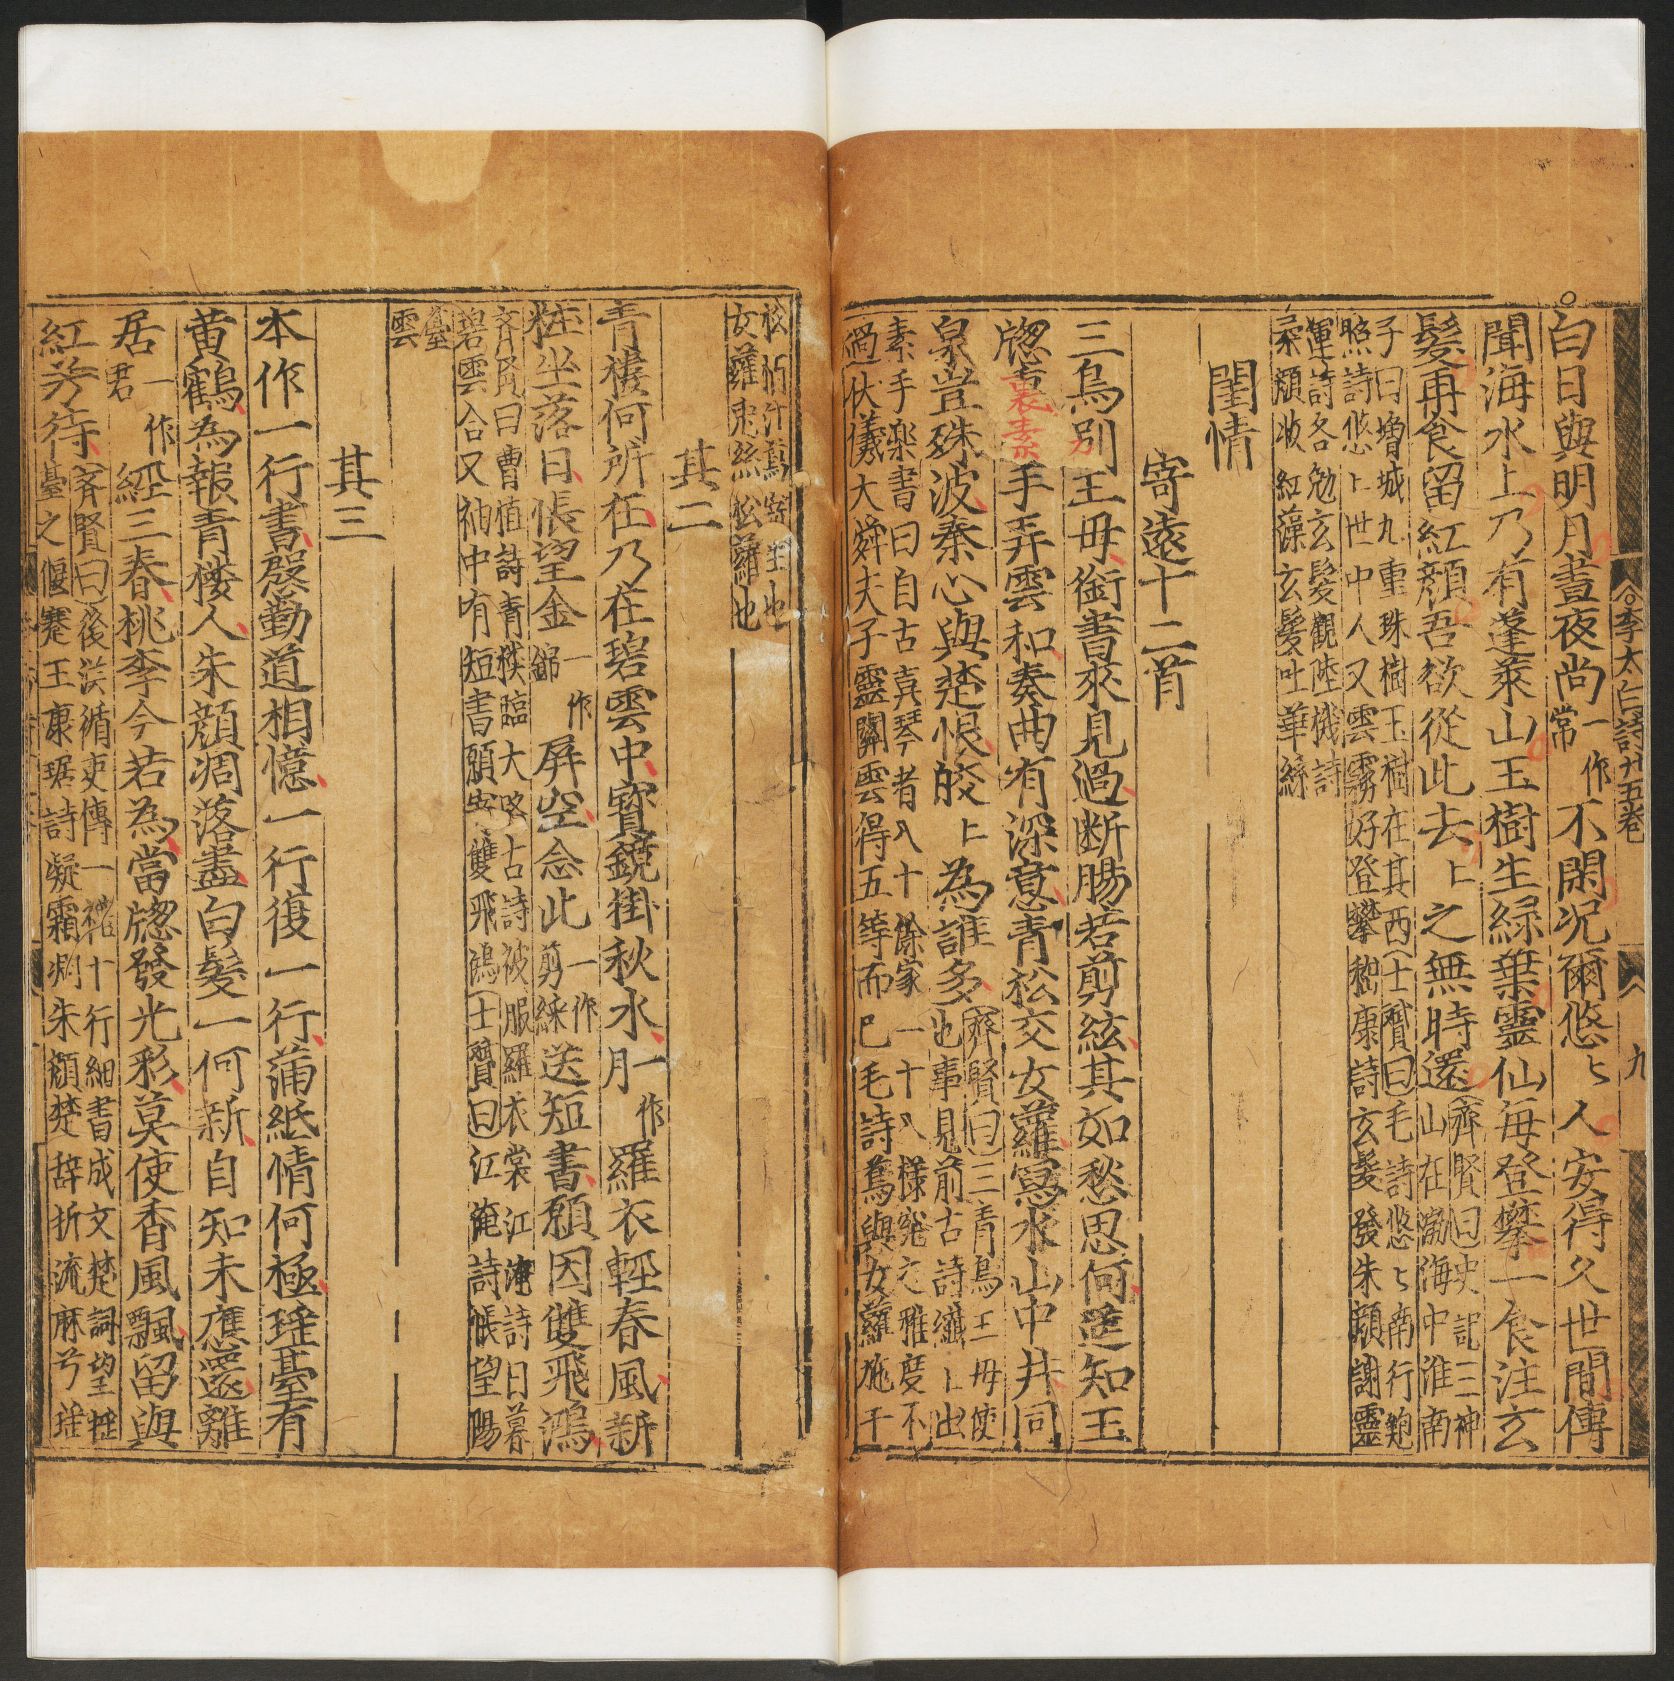 李太白詩廿五卷
九
白日與明月晝夜尚一作常不閑況爾悠〻人安得久世間傳
聞海水上乃有蓬萊山玉樹生緑葉靈仙每登攀一食注玄
髮再食留紅顔吾欲從此去〻之無時還齊賢曰史記三神山在渤海中淮南
子曰增城九重珠樹玉樹在其西士贇曰毛詩悠〻南行鮑
照詩悠〻世中人又雲霧好登攀嵇康詩玄髮發朱顔謝靈
運詩各勉玄髮觀陸機詩
朱顔收紅藻玄髮吐華絲
閨情
寄遠十二首
三鳥别王母銜書來見過断腸若剪絃其如愁思何遥知玉
窓裏素手弄雲和奏曲有深意青松交女蘿冩水山中井同
泉豈殊波秦心與楚恨皎〻為誰多齊賢曰三青鳥王母使也事見前古詩纖〻出
素手楽書曰自古真琴者八十餘家一十八様䆒之雅度不
過伏儀大舜夫子靈關雲得五等而巳毛詩蔦與女蘿施于
女蘿兎絲松蘿也
其二
青樓何所在乃在碧雲中寳鏡掛秋水一作月羅衣輕春風新
粧坐落日悵望金一作錦屏空念此一作剪綵送短書願因雙飛鴻
齊賢曰曹植詩青樓臨大路古詩被服羅衣裳江淹詩日暮
碧雲合又袖中有短書願寄雙飛鴻士贇曰江淹詩悵望陽
雲臺
其三
本作一行書殷勤道相憶一行復一行蒲紙情何極瑤臺有
黄鶴為報青楼人朱顔凋落盡白髮一何新自知未應還離
居一作君經三春桃李今若為當窓發光彩莫使香風飄留與
紅芳待齊賢曰後漢循吏傳一札十行細書成文楚詞望瑤
臺之偃蹇王康琚詩凝霜凋朱顔楚辞折流麻兮瑤